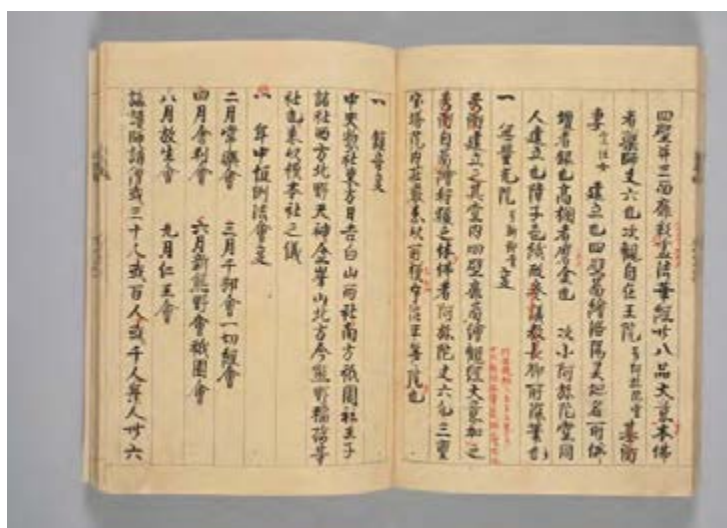 四壁并三面扉彩畫法華經廿八品大意本佛
者藥師丈六也次觀自在王院 号阿弥陀堂 基衡
妻 宗任女 建立也四壁圖繪洛陽霊地名所佛
壇者銀也高欄者磨金也 次小阿弥陀堂同
人建立也障子色紙形参議教長卿所染筆也
一 無量光院 号新御堂 事
秀衡建立之其堂内四壁扉圖繪觀經大意加之
秀衡自圖繪狩獵之体佛者阿弥陀丈六也三重
宝塔院内荘嚴悉以所模宇治平等院也
一 鎮守事
中央惣社東方日吉白山両社南方祇園社王子
諸社西方北野天神金峯山北方今熊野稲荷等
社也悉以模本社之儀
一 年中恒例法會事
二月常樂會 三月千部會一切經會
四月舎利會 六月新熊野會祇園會
八月放生會 九月仁王會
講讀師請僧或三十人或百人或千人舞人卅六